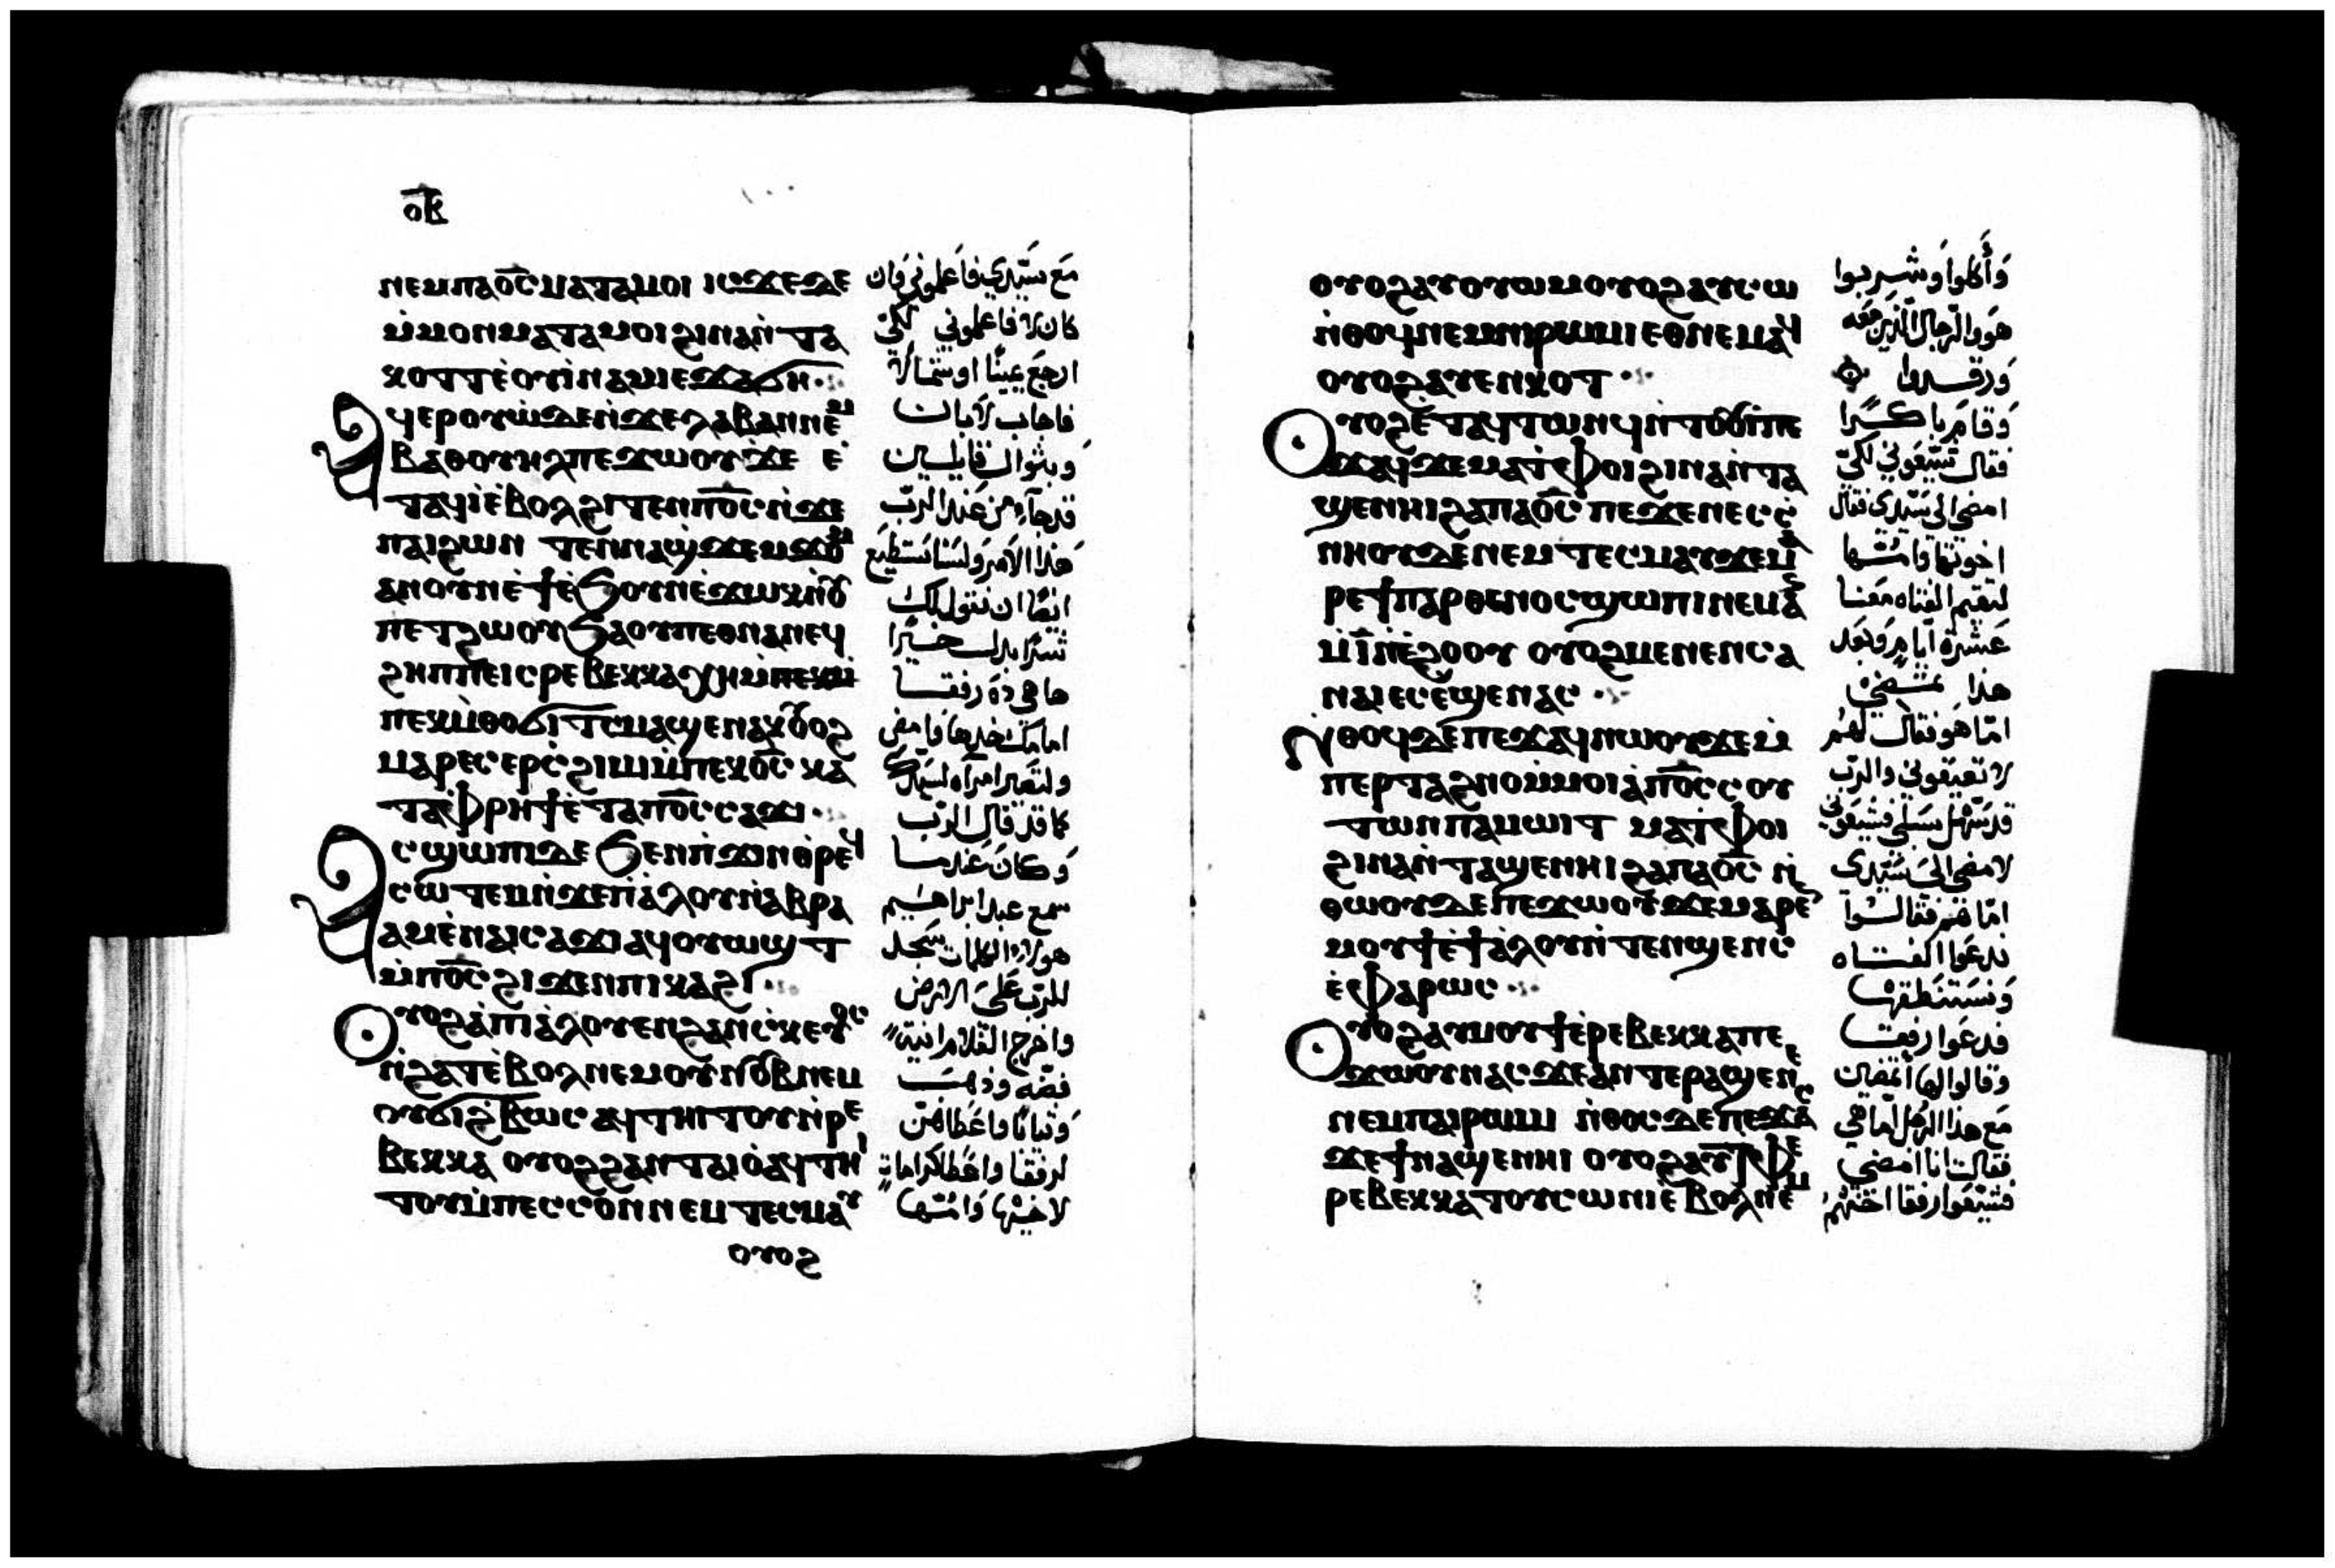 ⲟⲃ
ⲛⲉⲙⲡⲁⲟ̅ⲥ̅ ⲙⲁⲧⲁⲙⲟⲓ ⲓⲥϫⲉ ⲇⲉ
ⲙ̀ⲙⲟⲛ ⲙⲁⲧⲁⲙⲟⲓ ϩⲓⲛⲁ ⲛ̀ⲧⲁ
ⲕⲟⲧⲧ ⲉ̀ⲟⲩⲓ̀ⲛⲁⲙ ⲓⲉ ϫⲁϭⲏ
ⲁϥⲉⲣⲟⲩⲱ̀ ⲇⲉ ⲛ̀ϫⲉ ⲗⲁⲃⲁⲛ ⲛⲉⲙ
ⲃⲁⲑⲟⲩⲏⲗ ⲡⲉϫⲱⲟⲩ ϫⲉ ⲉ̀
ⲧⲁϥⲓ̀ ⲉ̀ⲃⲟⲗ ϩⲓⲧⲉⲛ ⲡⲟ̅ⲥ̅ ⲛ̀ϫⲉ
ⲡⲁⲓϩⲱⲃ ⲧⲉⲛⲛⲁϣϫⲉⲙϫⲟⲙ
ⲁⲛ ⲟⲩⲛ ⲉ̀ϯ ⲉ̀ϧⲟⲩⲛ ⲉ̀ϫⲱⲕ ⲛ̀ⲟⲩ
ⲡⲉⲧϩⲱⲟⲩ ϧⲁ ⲟⲩⲡⲉⲑⲛⲁⲛⲉϥ
ϩⲏⲡⲡⲉ ⲓⲥ ⲣⲉⲃⲉⲕⲕⲁ ⲭⲏ ⲙ̀ⲡⲉⲕⲙ̀
ⲡⲉⲕⲙ̀ⲑⲟ ϭⲓⲧⲥ ⲙⲁϣⲉⲛⲁⲕ ⲟⲩⲟϩ
ⲙⲁⲣⲉⲥⲉⲣⲥ̀ϩⲓⲙⲓ ⲙ̀ⲡⲉⲕⲟ̅ⲥ̅ ⲕⲁ
ⲧⲁ ⲫⲣⲏϯ ⲉ̀ⲧⲁ ⲡⲟ̅ⲥ̅ ⲥⲁϫⲓ
ⲁⲥϣⲱⲡⲓ ⲇⲉ ϧⲉⲛ ⲡ̀ϫⲓⲛⲑⲣⲉϥ
ⲥⲱⲧⲉⲙ ⲛ̀ϫⲉ ⲡ̀ⲁ̀ⲗⲟⲩ ⲛ̀ⲁⲃⲣⲁ
ⲁⲙ ⲉ̀ⲛⲁⲓⲥⲁϫⲓ ⲁϥⲟⲩⲱϣⲧ
ⲙ̀ⲡⲟ̅ⲥ̅ ϩⲓϫⲉⲛ ⲡⲓⲕⲁϩⲓ
ⲟⲩⲟϩ ⲁ̀ ⲡⲓⲁ̀ⲗⲟⲩ ⲉⲛ ϩⲁⲛⲥ̀ⲕⲉⲩⲟⲥ
ⲛ̀ϩⲁⲧ ⲉ̀ⲃⲟⲗ ⲛⲉⲙ ⲟⲩⲛⲟⲩⲃ ⲛⲉⲙ
ⲟⲩϭⲓϩ̀ⲃⲱⲥ ⲁϥⲧⲏⲓⲧⲟⲩ ⲛ̀ⲣⲉ
ⲃⲉⲕⲕⲁ ⲟⲩⲟϩ ϩⲁⲛⲧⲁⲓⲟ̀ ⲁϥⲧⲏⲓ
ⲧⲟⲩ ⲙ̀ⲡⲉⲥⲥⲟⲛ ⲛⲉⲙ ⲧⲉⲥⲙⲁⲩ
ⲟⲩⲟϩ
مع سيّدي فاعلموني وان
كان لا فاعلموني لكي
ارجع يمينًا او شمالًا
فاجاب لابان
وبثوال قايلين
قد جاء من عند الرب
هذا الامر ولسنا نستطيع
ايضًا ان نقول لك
شرًا بدل خيرًا
ها هي ذه رفقا
امامك خدها وامضي
ولتصير امراه لسيدك
كما قد قال الرب
وكان عندما
سمع عبد ابراهيم
هولاء الكلمات سجد
للرب على الارض
واخرج الغلام انية
فضه وذهب
وثيابًا واعطاهن
لرفقا واعطا كرامات
لاخيها وامّها
ⲟⲩⲟϩ ⲁⲩⲟⲩⲱⲙ ⲟⲩⲟϩ ⲁⲩⲥⲱ
ⲛ̀ⲑⲟϥ ⲛⲉⲙ ⲛⲓⲣⲱⲙⲓ ⲉⲑⲛⲉⲙⲁϥ
ⲟⲩⲟϩ ⲁⲩⲉⲛⲕⲟⲧ
ⲟⲩⲟϩ ⲉ̀ⲧⲁϥⲧⲱⲛϥ ⲛ̀ⲧⲟⲟⲩⲓ̀ ⲡⲉ
ϫⲁϥ ϫⲉ ⲙⲁⲧ̀ⲫⲟⲓ ϩⲓⲛⲁ ⲛ̀ⲧⲁ
ϣⲉⲛⲏⲓ ϩⲁ ⲡⲁⲟ̅ⲥ̅ ⲡⲉϫⲉ ⲛⲉⲥⲥ̀
ⲛⲏⲟⲩ ⲇⲉ ⲛⲉⲙ ⲧⲉⲥⲙⲁⲩ ϫⲉ ⲙⲁ
ⲣⲉ ϯⲡⲁⲣⲑⲉⲛⲟⲥ ϣⲱⲡⲓ ⲛⲉⲙⲁⲛ
ⲙ̀ⲓ̅ ⲛ̀ⲉ̀ϩⲟⲟⲩ ⲟⲩⲟϩ ⲙⲉⲛⲉⲛⲥⲁ
ⲛⲁⲓ ⲉⲥⲉ̀ϣⲉⲛⲁⲥ
ⲛ̀ⲑⲟϥ ⲇⲉ ⲡⲉϫⲁϥ ⲛⲱⲟⲩ ϫⲉ ⲙ̀
ⲡⲉⲣⲧⲁϩⲛⲟ ⲙ̀ⲙⲟⲓ ⲁ̀ ⲡⲟ̅ⲥ̅ ⲥⲟⲩ
ⲧⲱⲛ ⲡⲁⲙⲱⲓⲧ ⲙⲁⲧ̀ⲫⲟⲓ
ϩⲓⲛⲁ ⲛ̀ⲧⲁϣⲉⲛⲏⲓ ϩⲁ ⲡⲁⲟ̅ⲥ̅ ⲛ̀
ⲑⲱⲟⲩ ⲇⲉ ⲡⲉϫⲱⲟⲩ ϫⲉ ⲙⲁⲣⲉⲛ
ⲙⲟⲩϯ ⲉ̀ϯⲁ̀ⲗⲟⲩ ⲛ̀ⲧⲉⲛϣⲉⲛⲥ
ⲉ̀ⲫ̀ⲣⲱⲥ
ⲟⲩⲟϩ ⲁⲩⲙⲟⲩϯ ⲉ̀ⲣⲉⲃⲉⲕⲕⲁ ⲡⲉ
ϫⲱⲟⲩ ⲛⲁⲥ ϫⲉ ⲁⲛ ⲧⲉⲣⲁϣⲉⲛⲉ
ⲛⲉⲙ ⲡⲁⲓⲣⲱⲙⲓ ⲛ̀ⲑⲟⲥ ⲇⲉ ⲡⲉϫⲁⲥ
ϫⲉ ϯⲛⲁϣⲉⲛⲏⲓ ⲟⲩⲟϩ ⲁⲩⲧ̀ⲫⲉ
ⲣⲉⲃⲉⲕⲕⲁ ⲧⲟⲩⲥⲱⲛⲓ ⲉ̀ⲃⲟⲗ ⲛⲉⲙ
وأكلوا وشربوا
هو والرجال الذين معه
ورقدوا
وقام باكرًا
فقال شيّعوني لكي
امضي الي سيّدي فقال
اخوتها وامّها
لتقيم الفتاه معنا
عشرة ايام وبعد
هذا تمضي
امّا هو فقال لهم
لا تعيقوني والرب
قد سهل سبيلي فشيعوني
لامضي الى سيّدي
امّا هم فقالوا
ندعوا الفتاه
ونستنطقها
فدعوا رفقا
وقالوا لها أتمضين
مع هذا الرجل اما هي
فقالت انا امضي
فشيّعوا رفقا اختهم